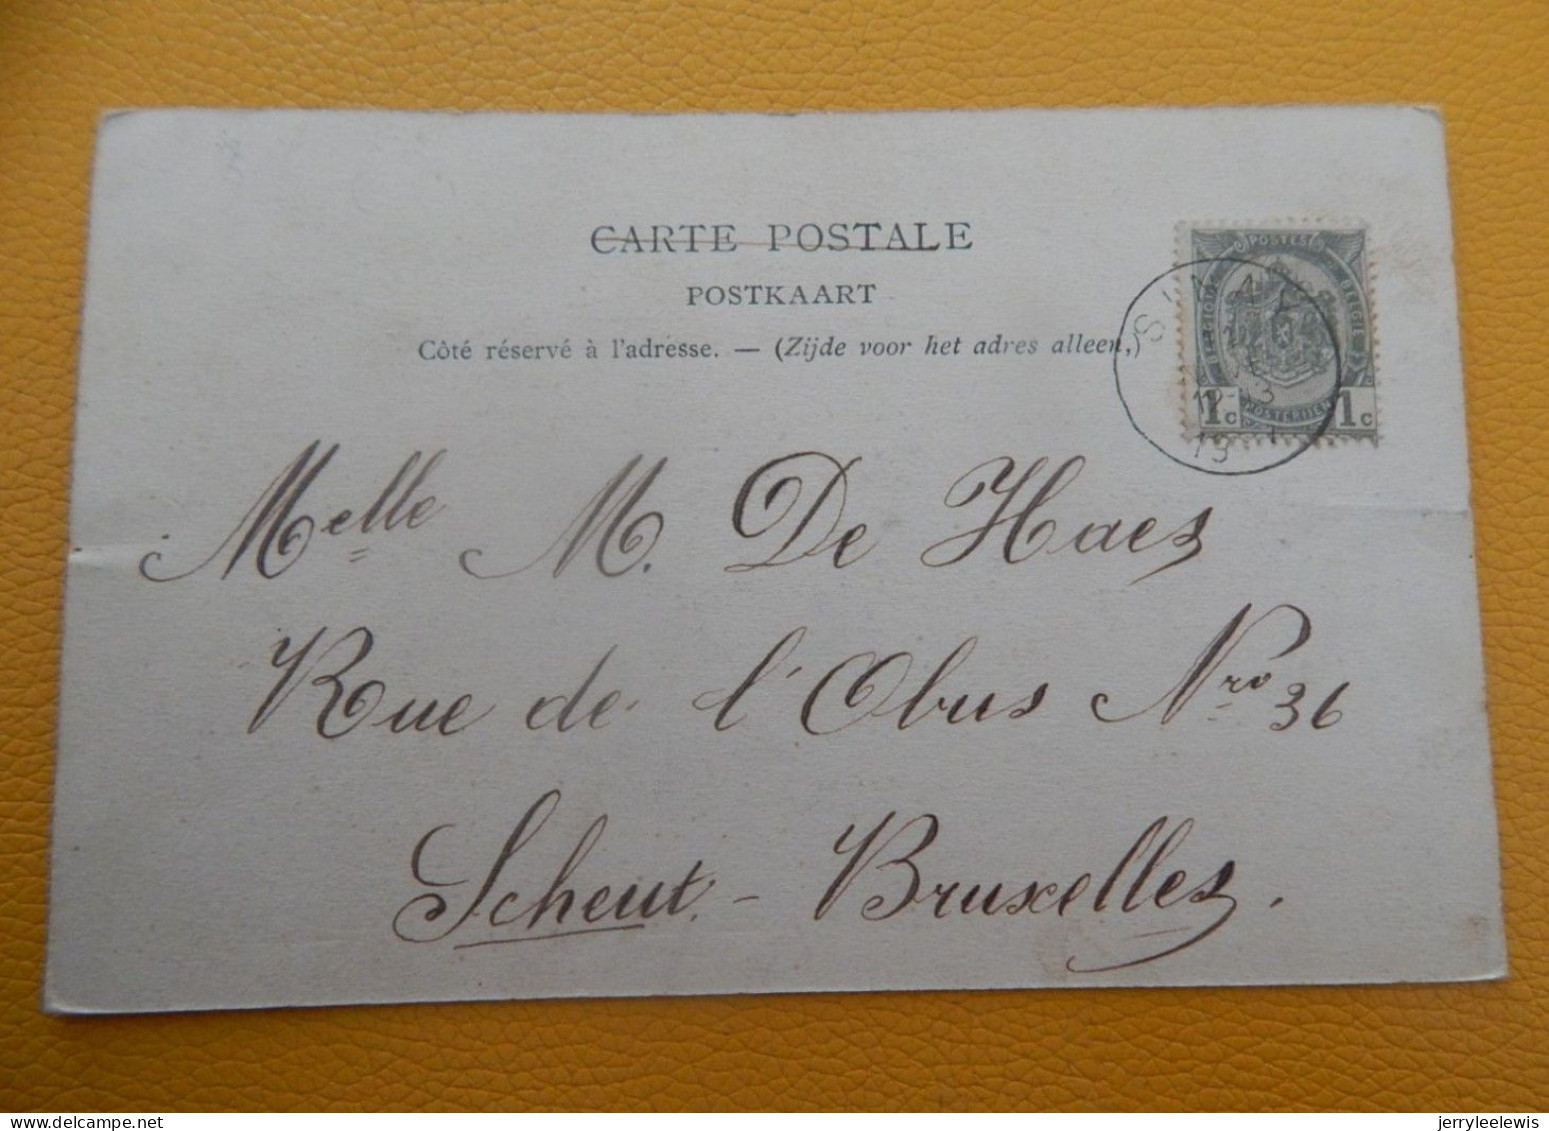 CARTE POSTALE
POSTKAART
Côté réservé à l'adresse. — (Zijde voor het adres alleen,)
POSTES
BELGIQUE BELGIË
1c POSTERIJEN 1c
Melle M. De Haes
Rue de l'Obus Nro 36
Scheut. - Bruxelles.
delcampe.net
jerryleelewis